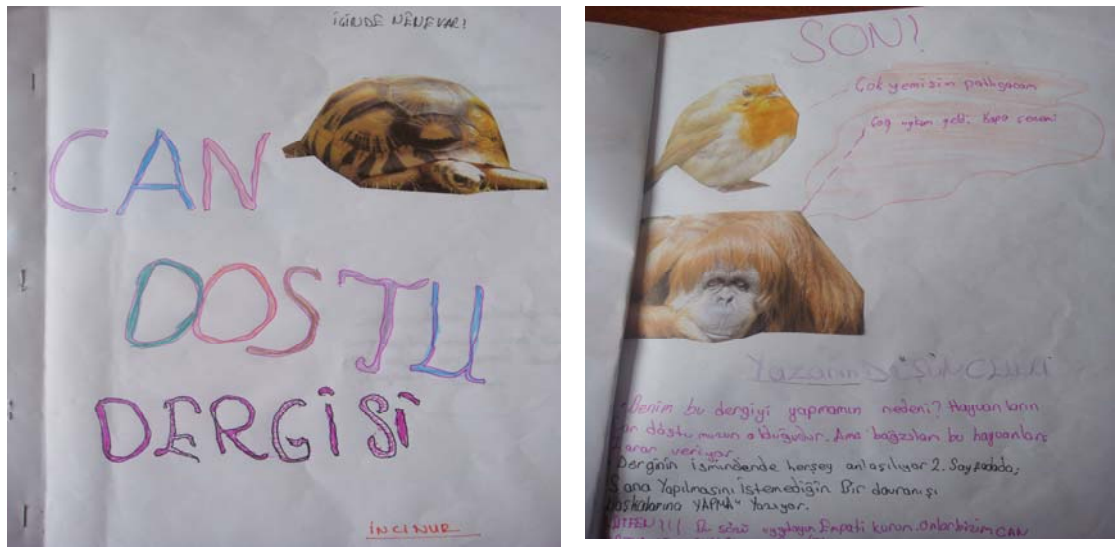 İÇİNDE NENEVAR!
CAN
DOSTU
DERGİSİ
İNCİNUR
SON!
Çok yemişin patlıyacam
Çog uykum geldi. Kapa çeneni
Yazarın DÜŞÜNCELERİ
Benim bu dergiyi yapmamın nedeni? Hayvanların
dostu olduğudur. Ama bağzıları bu hayvanlara
zarar veriyor.
Derginin ismindende herşey anlaşılıyor 2. Sayfadada;
Sana Yapılmasını istemediğin Bir davranışı
başkalarına YAPMA" Yazıyor.
LÜTFEN!!! Bu sözü uygulayın Empati kurun. Onlar bizim CAN